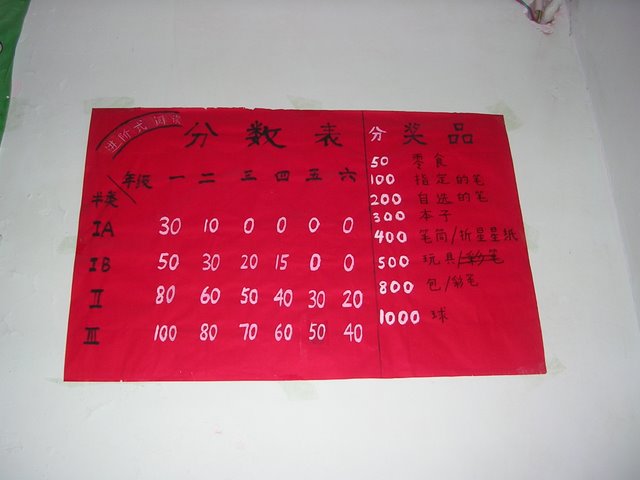 进阶式阅读
分数表
年级 一 二 三 四 五 六
类
IA 30 10 0 0 0 0
IB 50 30 20 15 0 0
II 80 60 50 40 30 20
III 100 80 70 60 50 40
分 奖品
50 零食
100 指定的笔
200 自选的笔
300 本子
400 笔筒/折星星纸
500 玩具/彩笔
800 包/彩笔
1000 球